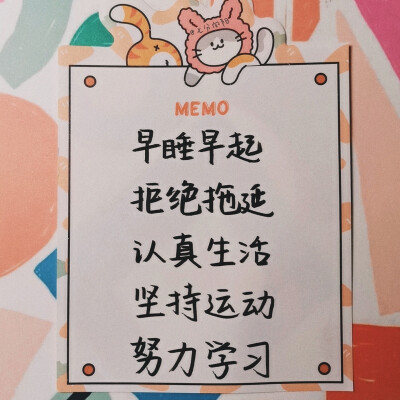 MEMO
早睡早起
拒绝拖延
认真生活
坚持运动
努力学习